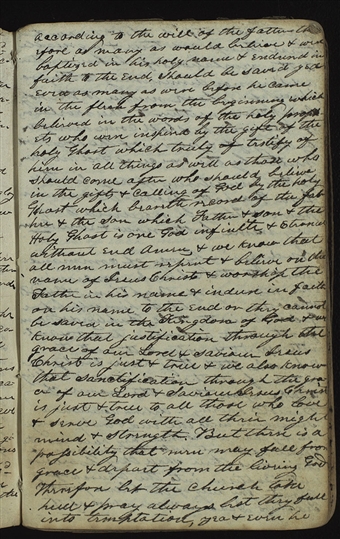 according to the will of the father
fore as many as would believe & were
baptized in his holy name & endured in
faith to the End, should be saved yea
Even as many as were before he came
in the flesh from the beginning which
believed in the words of the holy proph
ets who were inspired by the gift of the
holy Ghost which truly of testify of
him in all things as well as those who
should come after who should believe
in the gifts & Calling of God by the holy
Ghost which beareth record of the fat
her & the Son which Father & Son & the
Holy Ghost is one God infinite & Eternal
without End Amen, & we know that
all men must repent & believe on the
name of Jesus Christ & worship the
Father in his name & indure in faith
on his name to the End or they cannot
be saved in the Kingdom of God & we
know that justification through the
grace of our Lord & Saviour Jesus
Christ is just & true & we also know
that Sanctification through the gra
ce of our Lord & Saviour Jesus Christ
is just & true to all those who love
& serve God with all their might
mind & strength, But there is a
possibility that men may fall from
grace & depart from the living God
Therefore let the Church take
heed & pray always lest they fall
into temptation, yea & even he